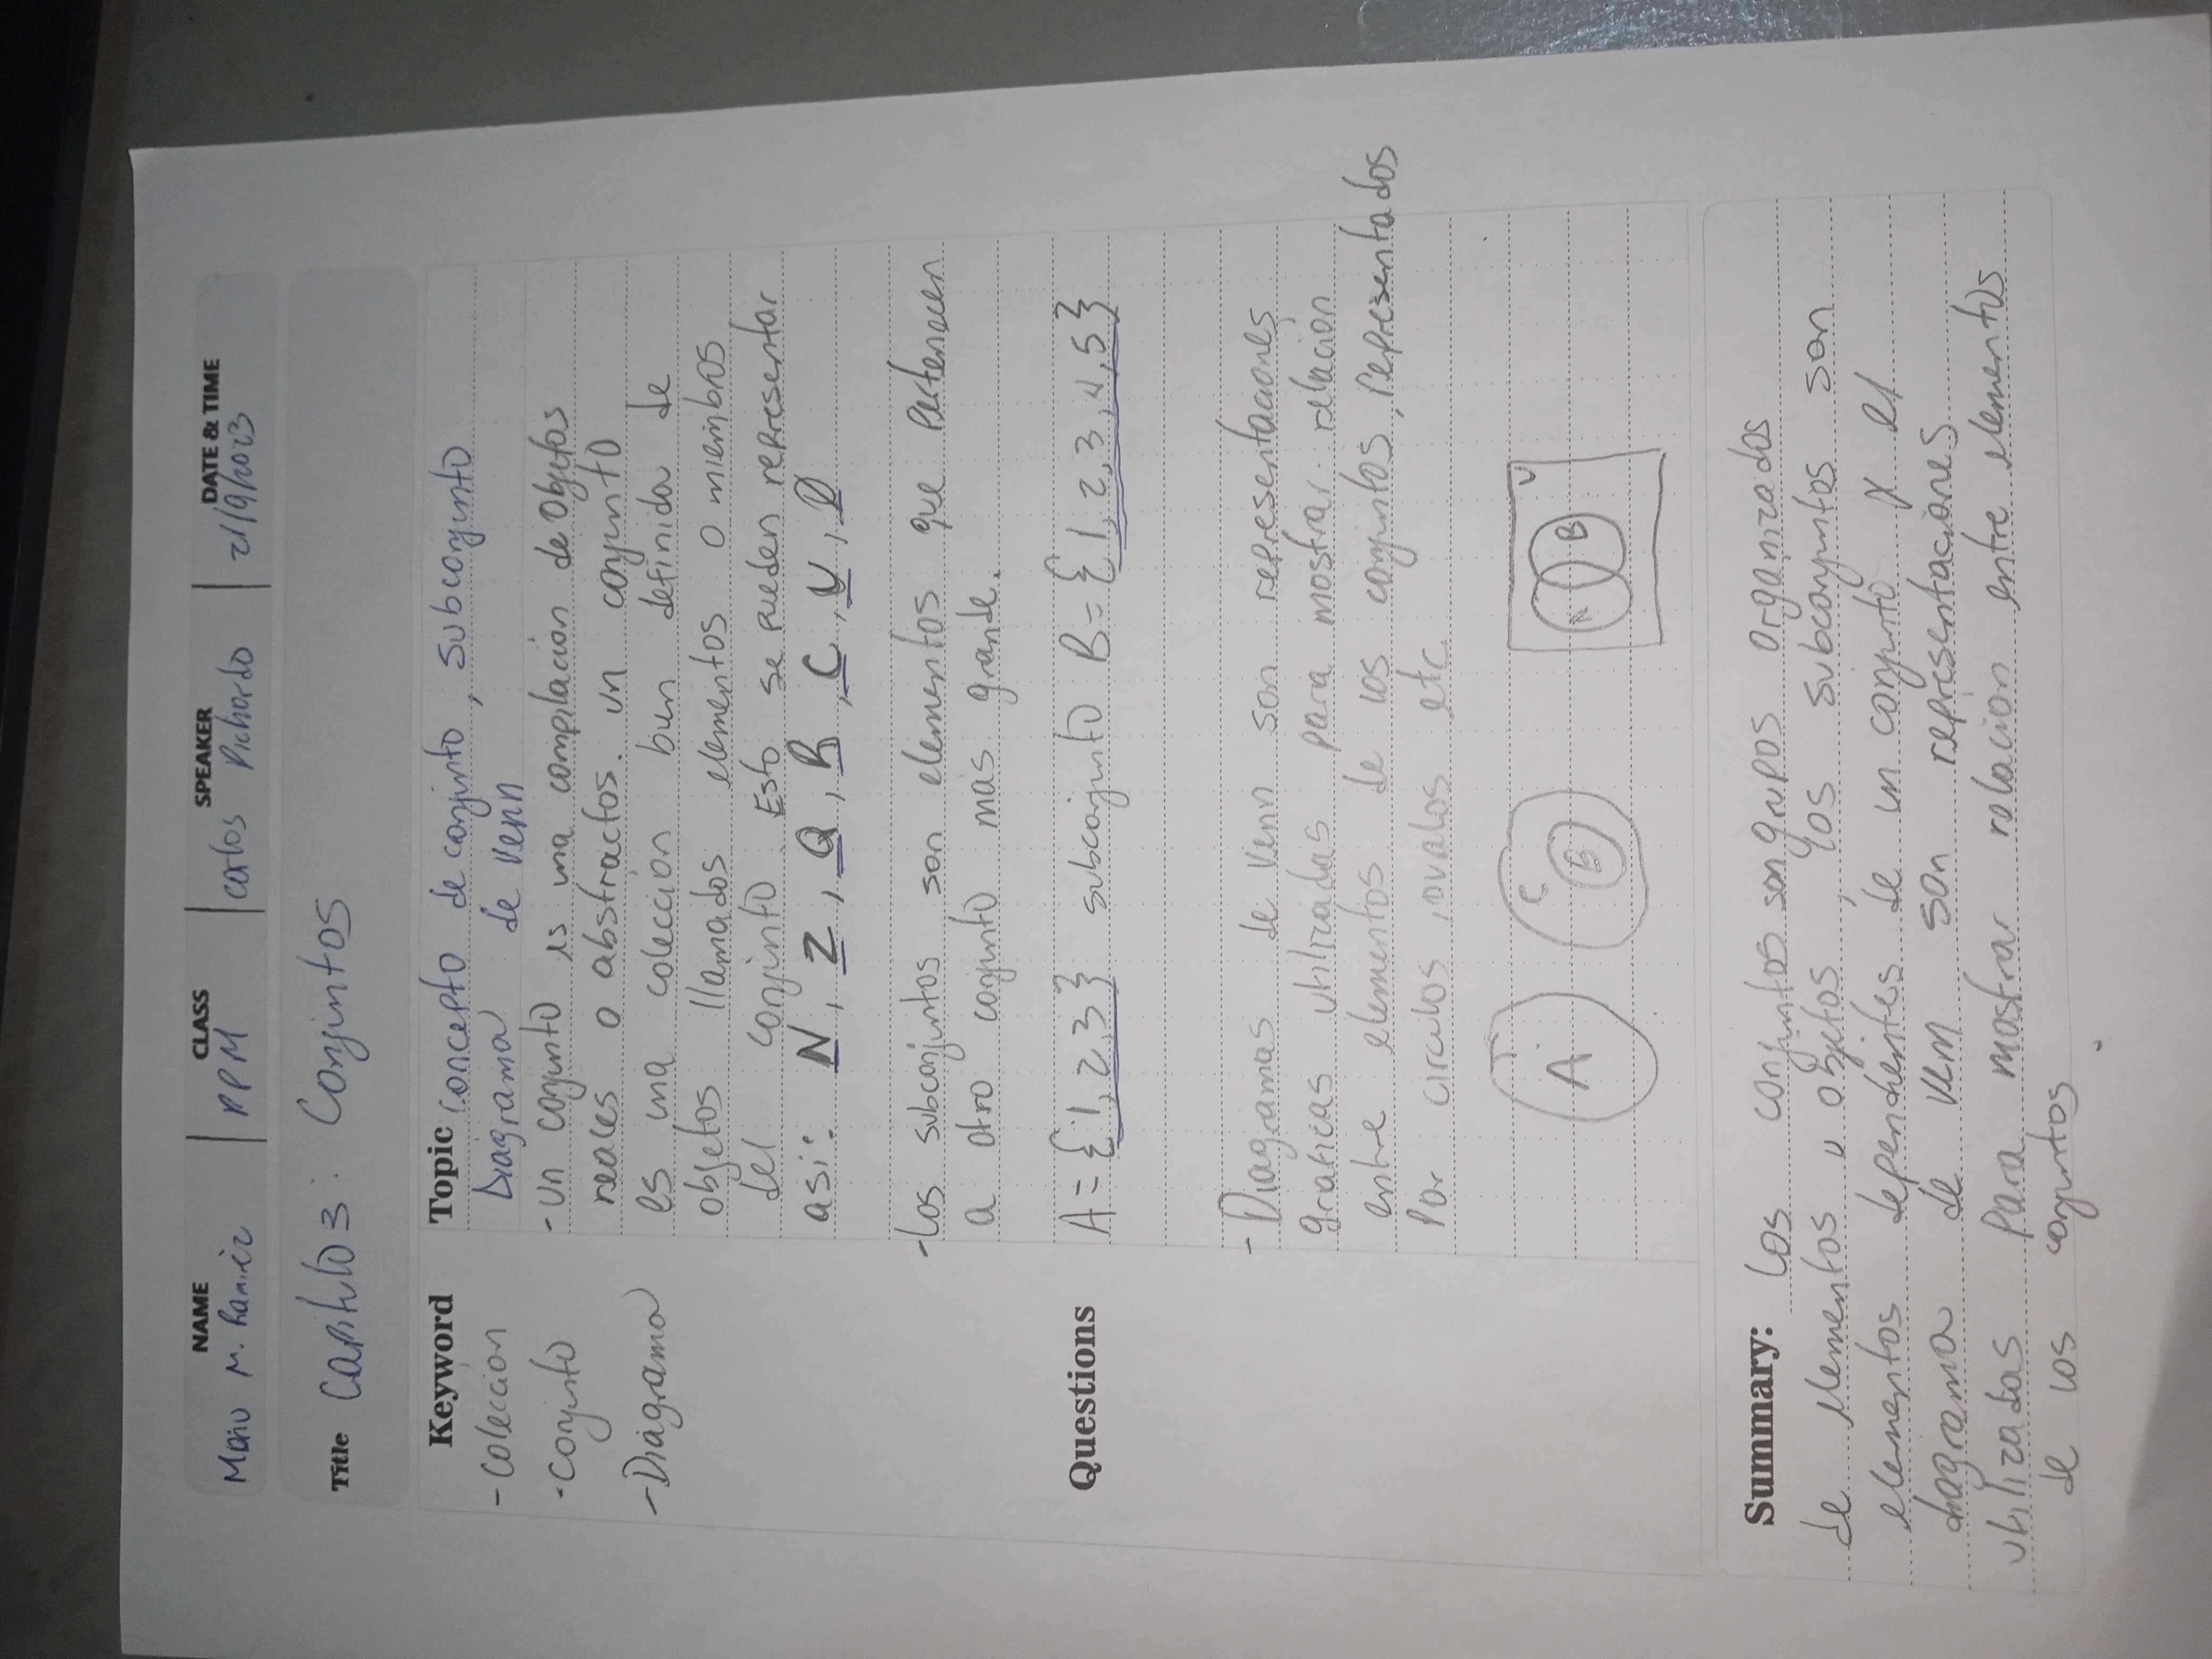 NAME CLASS SPEAKER DATE & TIME
M. Ramirez PPM Carlos Pichardo 21/9/2023
Title Capitulo 3: Conjuntos
Keyword
- Coleccion
- Conjunto
- Diagrama
Topic Concepto de conjunto, subconjunto
Diagrama de Venn
- Un conjunto es una compilación de Objetos
reales o abstractos. un conjunto
es una colección bien definida de
objetos llamados elementos o miembros
del conjunto. Esto se pueden representar
asi: N, Z, Q, R, C, U, Ø
- Los subconjuntos son elementos que pertenecen
a otro conjunto mas grande.
Questions
A={1,2,3} subconjunto B={1,2,3,4,5}
- Diagramas de Venn son representaciones
graficas utilizadas para mostrar relación
entre elementos de los conjuntos, representados
por circulos, ovalos etc.
A C B A B U
Summary: Los conjuntos son grupos organizados
de elementos u objetos, los subconjuntos son
elementos dependientes de un conjunto y el
diagrama de Venn son representaciones
utilizadas para mostrar relación entre elementos
de los conjuntos.